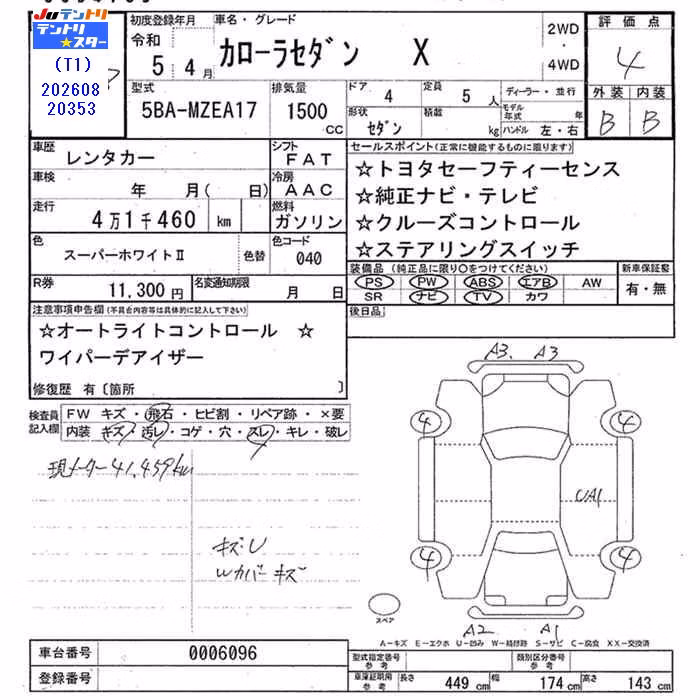 JUテントリ
テントリ
★スター
(T1)
202608
20353
初度登録年月
令和
5年4月
車名・グレード
カローラセダン X
2WD
・
4WD
評価点
4
外装 内装
B B
型式
5BA-MZEA17
排気量
1500
CC
ドア 4
定員 5人
形状 セダン
積載 kg
ディーラー・並行
モデル年式 年
ハンドル 左・右
車歴 レンタカー
シフト FAT
車検 年 月( 日)
冷房 AAC
走行 4万1千460 km
燃料 ガソリン
色 スーパーホワイトⅡ 色替
色コード 040
R券 11,300円
名変通知期限 月 日
セールスポイント(正常に機能するものに限ります)
☆トヨタセーフティーセンス
☆純正ナビ・テレビ
☆クルーズコントロール
☆ステアリングスイッチ
装備品(純正品に限り○をつけてください)
PS PW ABS エアB AW
SR ナビ TV カワ
新車保証書
有・無
後日品
注意事項申告欄(不具合内容等は具体的に記入して下さい)
☆オートライトコントロール ☆
ワイパーデアイザー
修復歴 有〔箇所 〕
検査員記入欄
FW キズ・飛石・ヒビ割・リペア跡・×要
内装 キズ・汚レ・コゲ・穴・スレ・キレ・破レ
現メーター41,459km
キズ・U
Wカバーキズ
A3. A3
4 4
UA1
4 4
スペア
A2 A1
A-キズ E-エクボ U-凹み W-補修跡 S-サビ C-腐食 XX-交換済
車台番号 0006096
登録番号
型式指定番号 参考
類別区分番号 参考
車庫証明用 参考
長さ 449cm 幅 174cm 高さ 143cm